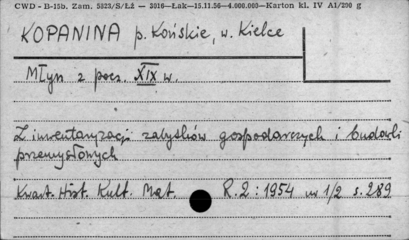 CWD - B-15b. Zam. 5523/S/Łż — 3016—Łak—15.11.56—4.000.000—Karton kl. IV A1/200 g
KOPANINA p. Końskie, w. Kielce
Młyn z pocz. XIX w.
Z inwentaryzacji zabytków gospodarczych i budowli
przemysłowych
Kwart. Hist. Kult. Mat. R. 2 : 1954 nr 1/2 s. 289